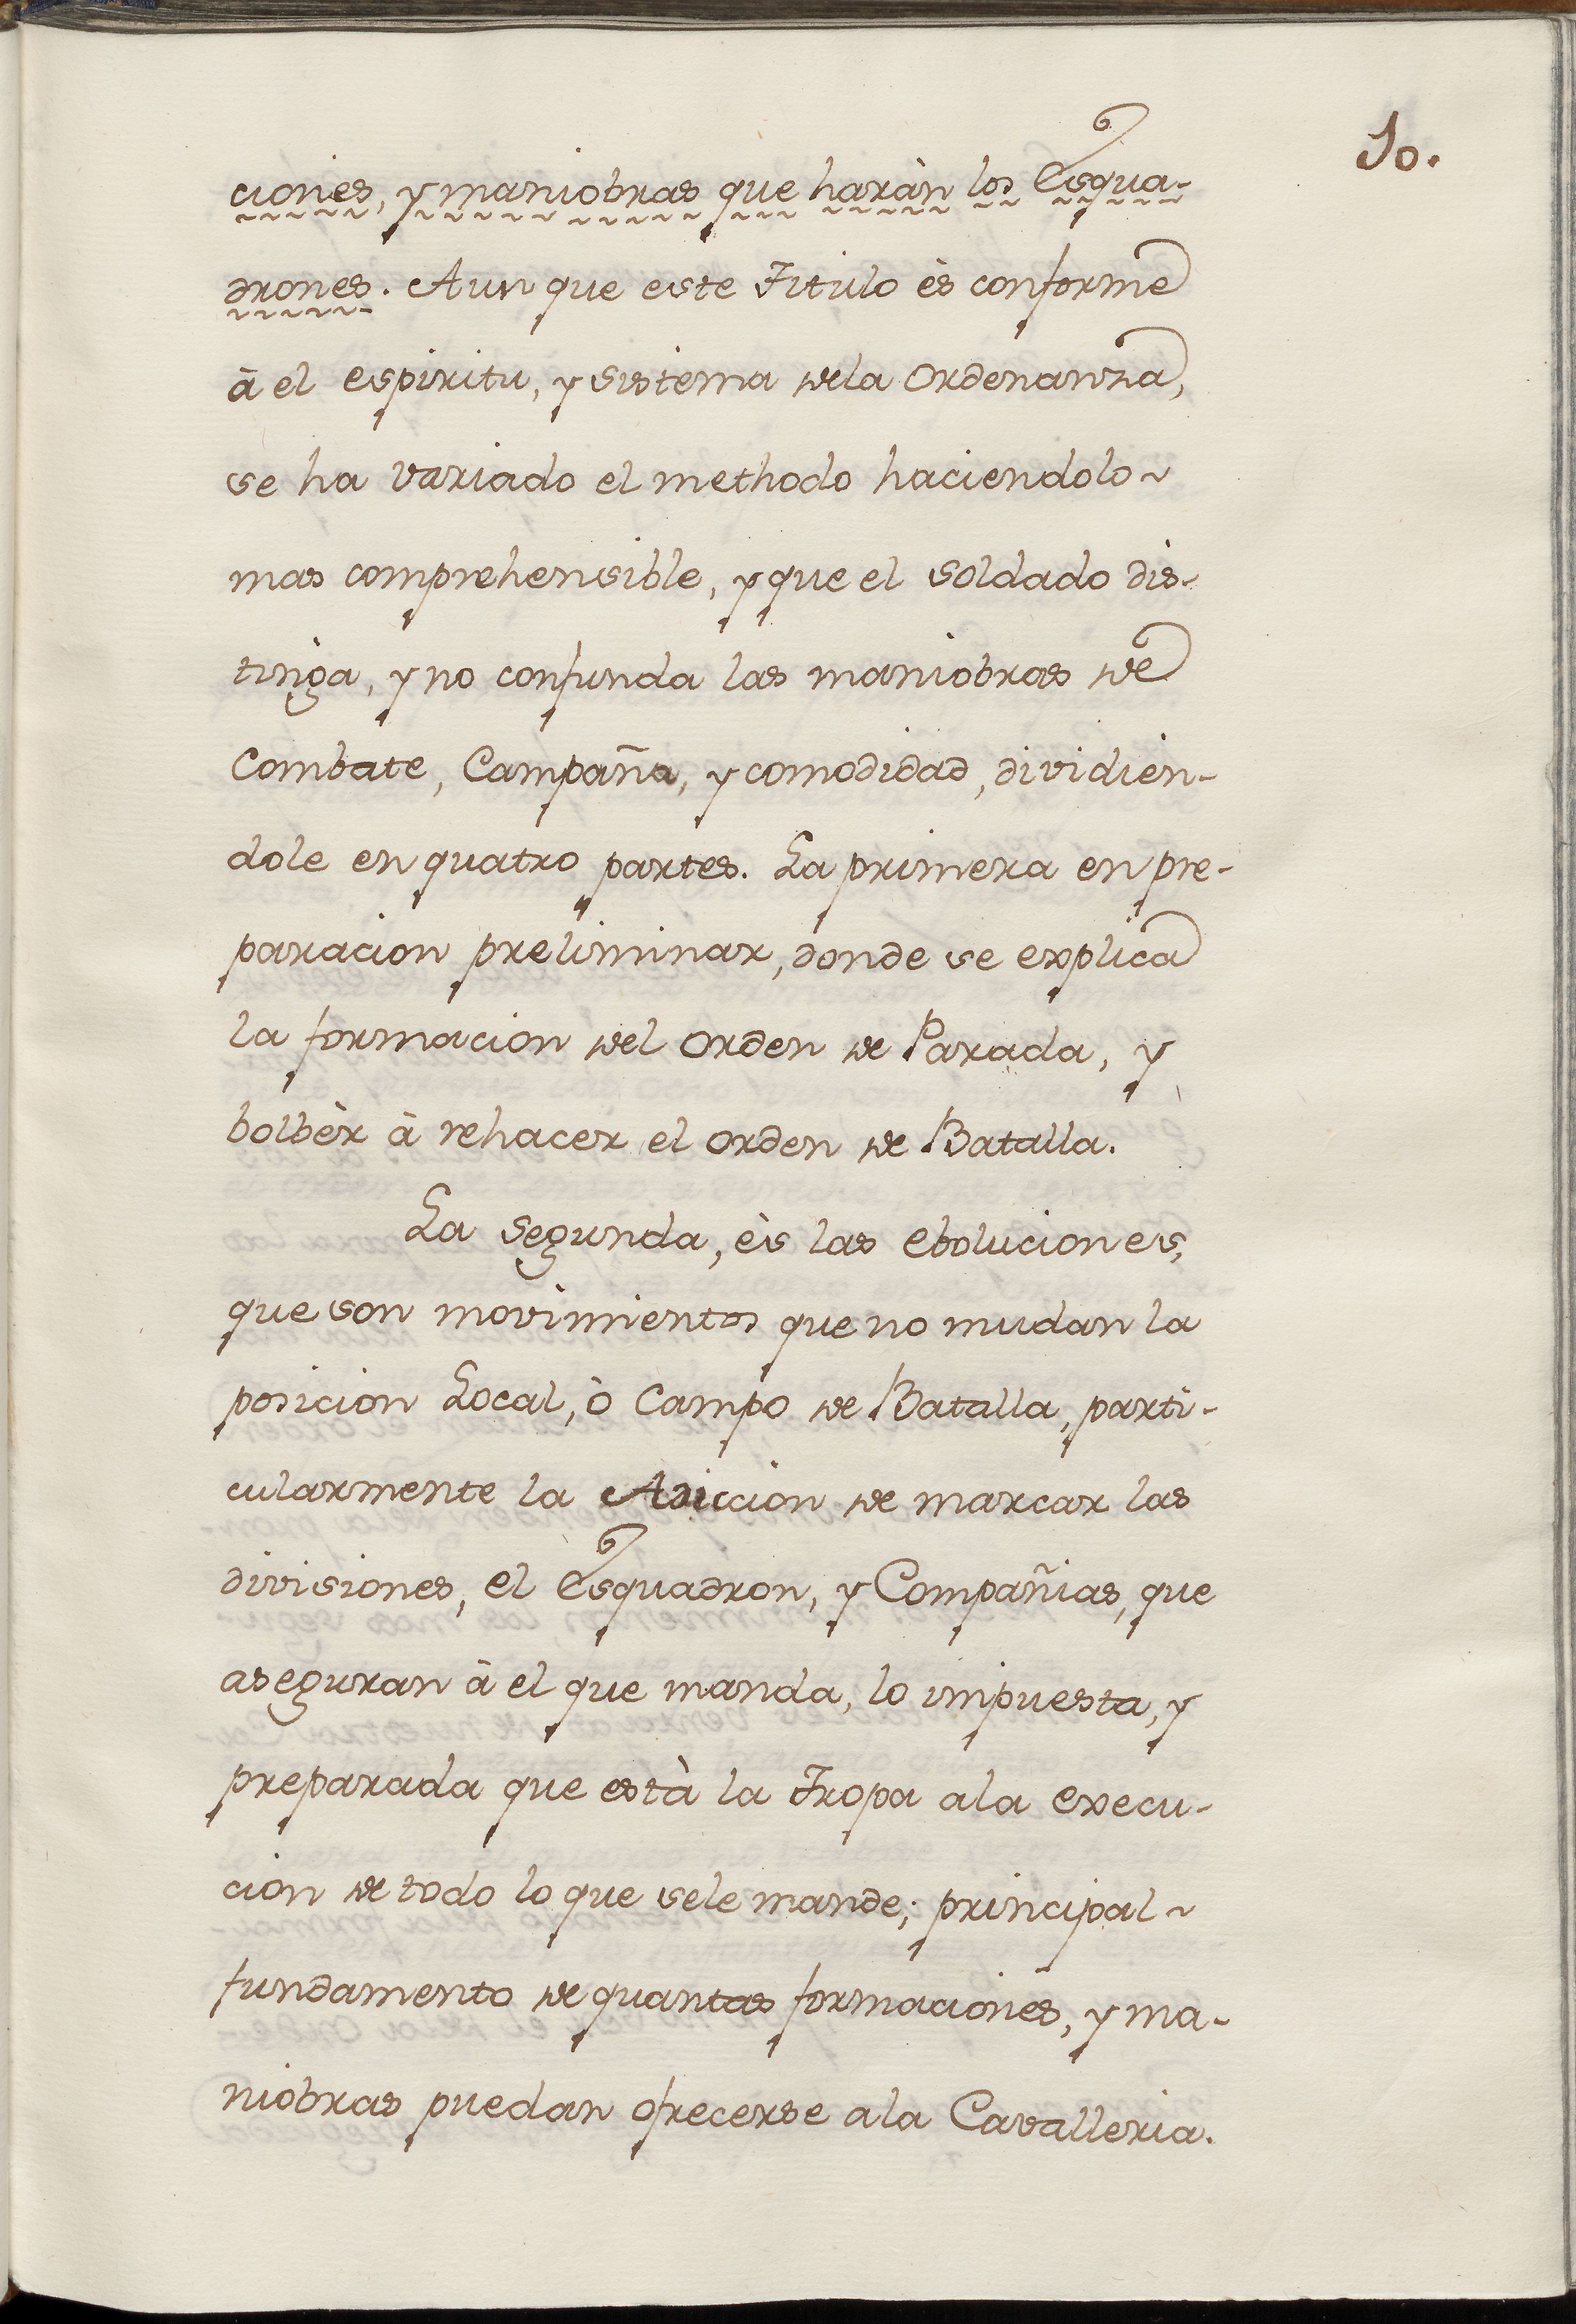 10.
ciones, y maniobras que haràn los Esqua-
drones. Aun que este Titulo ès conforme
à el espiritu, y sistema dela Ordenanza,
se ha variado el methodo haciendolo~
mas comprehensible, y que el soldado dis-
tinga, y no confunda las maniobras de
Combate, Campaña, y comodidad, dividien-
dole en quatro partes. La primera en pre-
paracion preliminar, donde se explica
la formacion del Orden de Parada, y
bolbèr à rehacer el Orden de Batalla.
La Segunda, ès las eboluciones,
que son movimientos que no mudan la
posicion Local, ò Campo de Batalla, parti-
cularmente la Adiccion de marcar las
divisiones, el Esquadron, y Compañias, que
aseguran à el que manda, lo impuesta, y
preparada que està la Tropa ala execu-
cion de todo lo que sele mande; principal~
fundamento de quantas formaciones, y ma-
niobras puedan ofrecerse ala Cavalleria.